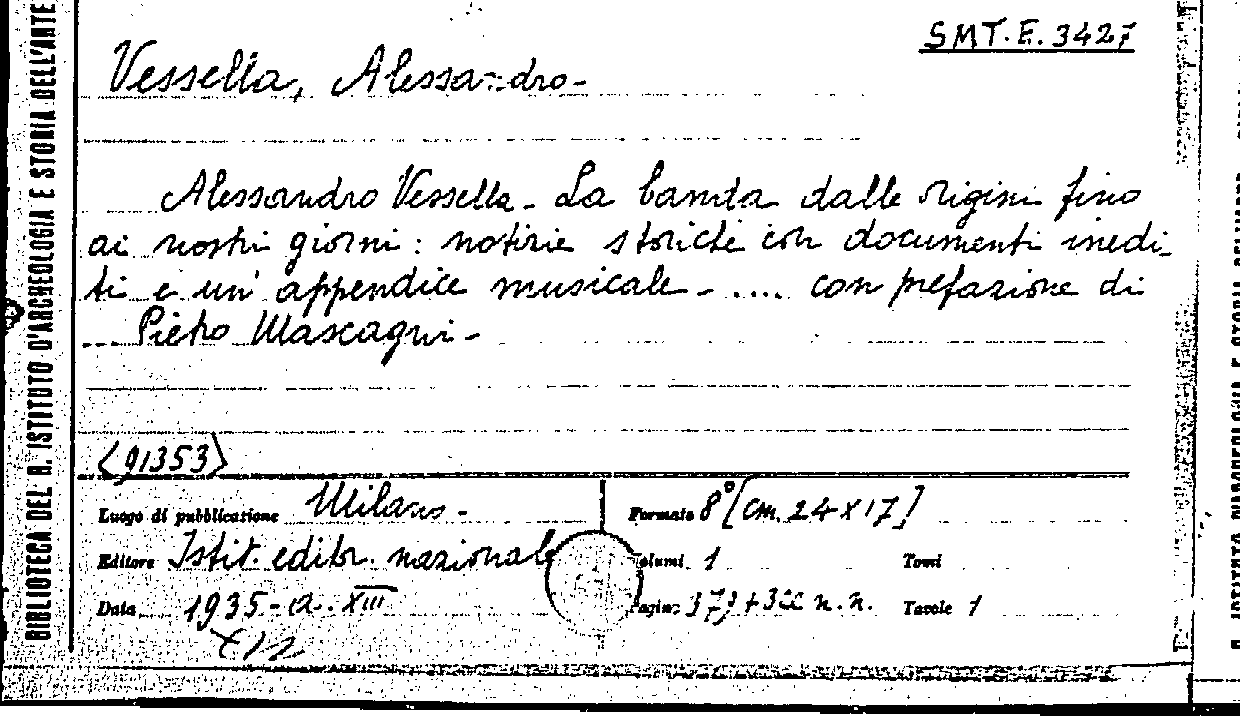 SMT.E.3427
Vessella, Alessandro-
Alessandro Vessella - La banda dalle origini fino
ai nostri giorni: notizie storiche con documenti inedi-
ti e un' appendice musicale - .... con prefazione di
Pietro Mascagni -
<91353>
Luogo di pubblicazione Milano -
Formato 8° [cm. 24 x 17]
Editore Istit. editor. nazionale
Volumi 1 Tomi
Data 1935 - a. XIII
Pagine n. n. Tavole 1
BIBLIOTECA DEL R. ISTITUTO D'ARCHEOLOGIA E STORIA DELL'ARTE